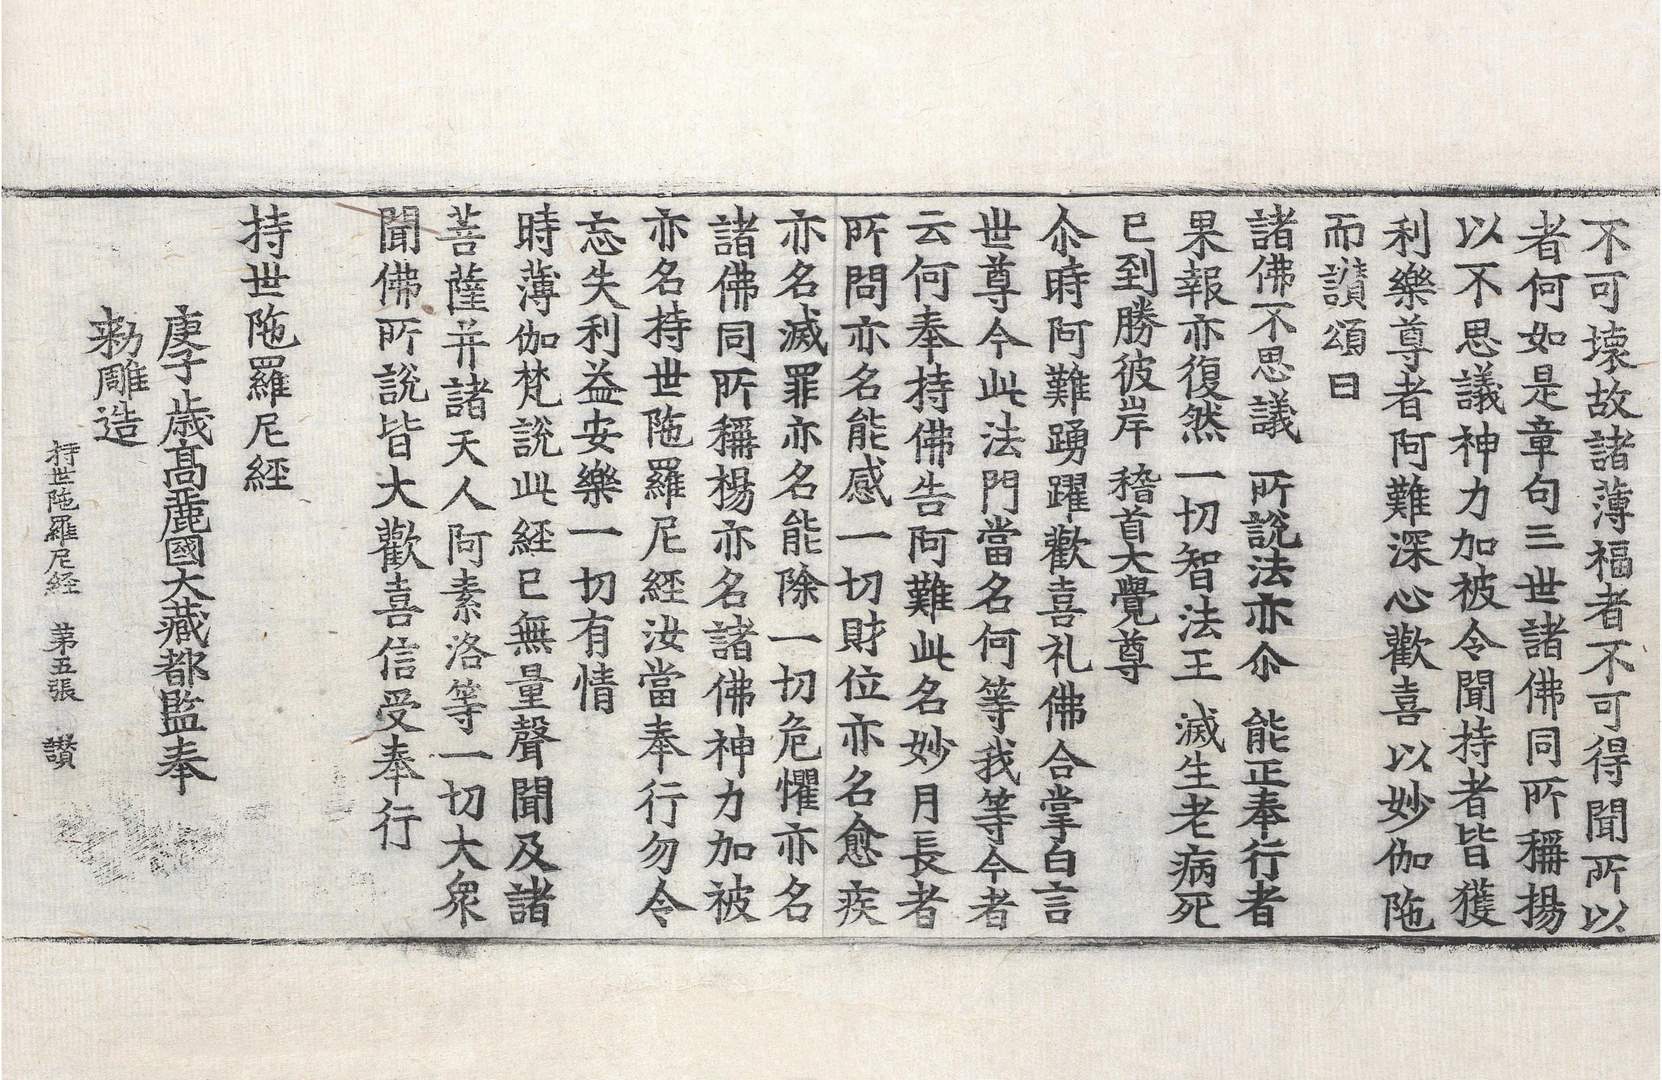 不可壞故諸薄福者不可得聞所以
者何如是章句三世諸佛同所稱揚
以不思議神力加被令聞持者皆獲
利樂尊者阿難深心歡喜以妙伽陁
而讃頌曰
諸佛不思議 所說法亦尒 能正奉行者
果報亦復然 一切智法王 滅生老病死
已到勝彼岸 稽首大覺尊
尒時阿難踴躍歡喜礼佛合掌白言
世尊今此法門當名何等我等今者
云何奉持佛告阿難此名妙月長者
所問亦名能感一切財位亦名愈疾
亦名滅罪亦名能除一切危懼亦名
諸佛同所稱揚亦名諸佛神力加被
亦名持世陁羅尼經汝當奉行勿令
忘失利益安樂一切有情
時薄伽梵說此經已無量聲聞及諸
菩薩并諸天人阿素洛等一切大衆
聞佛所說皆大歡喜信受奉行
持世陁羅尼經
庚子歳高麗國大藏都監奉
勑雕造
持世陁羅尼経 苐五張 讃